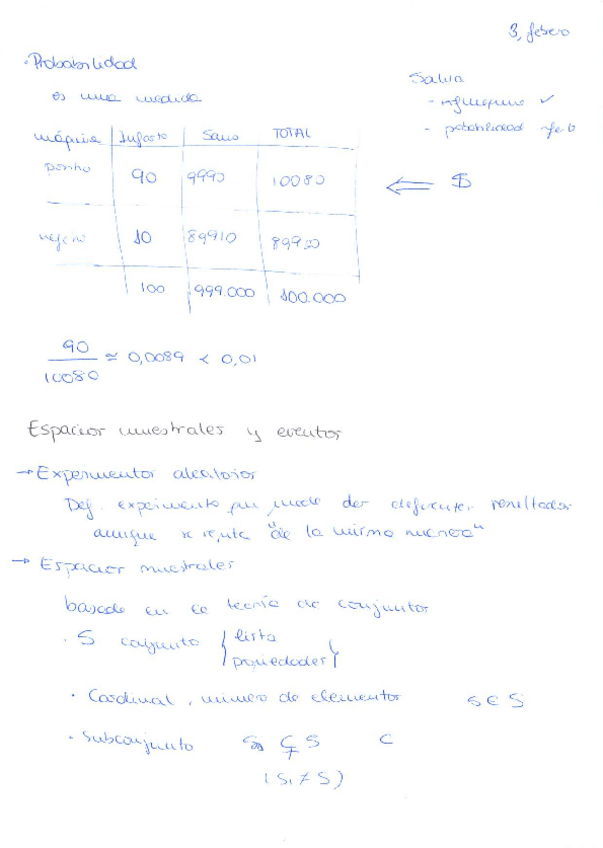 3, febero
· Probabilidad
es una medida
Saliva
- ✓
- probabilidad
máquina Infarto Sano TOTAL
positivo 90 9990 10080
⇐ $
negativo 10 89910 89920
100 999.000 100.000
90/10080 ≃ 0,0089 < 0,01
Espacios muestrales y eventos
→ Experimentos aleatorios
Def. experimento que puede dar diferentes resultados
aunque se repita "de la misma manera"
→ Espacios muestrales
basado en la teoría de conjuntos
· S conjunto { lista
propiedades }
· Cardinal, número de elementos s ∈ S
· Subconjunto S₁ ⊊ S ⊂
(S₁ ≠ S)